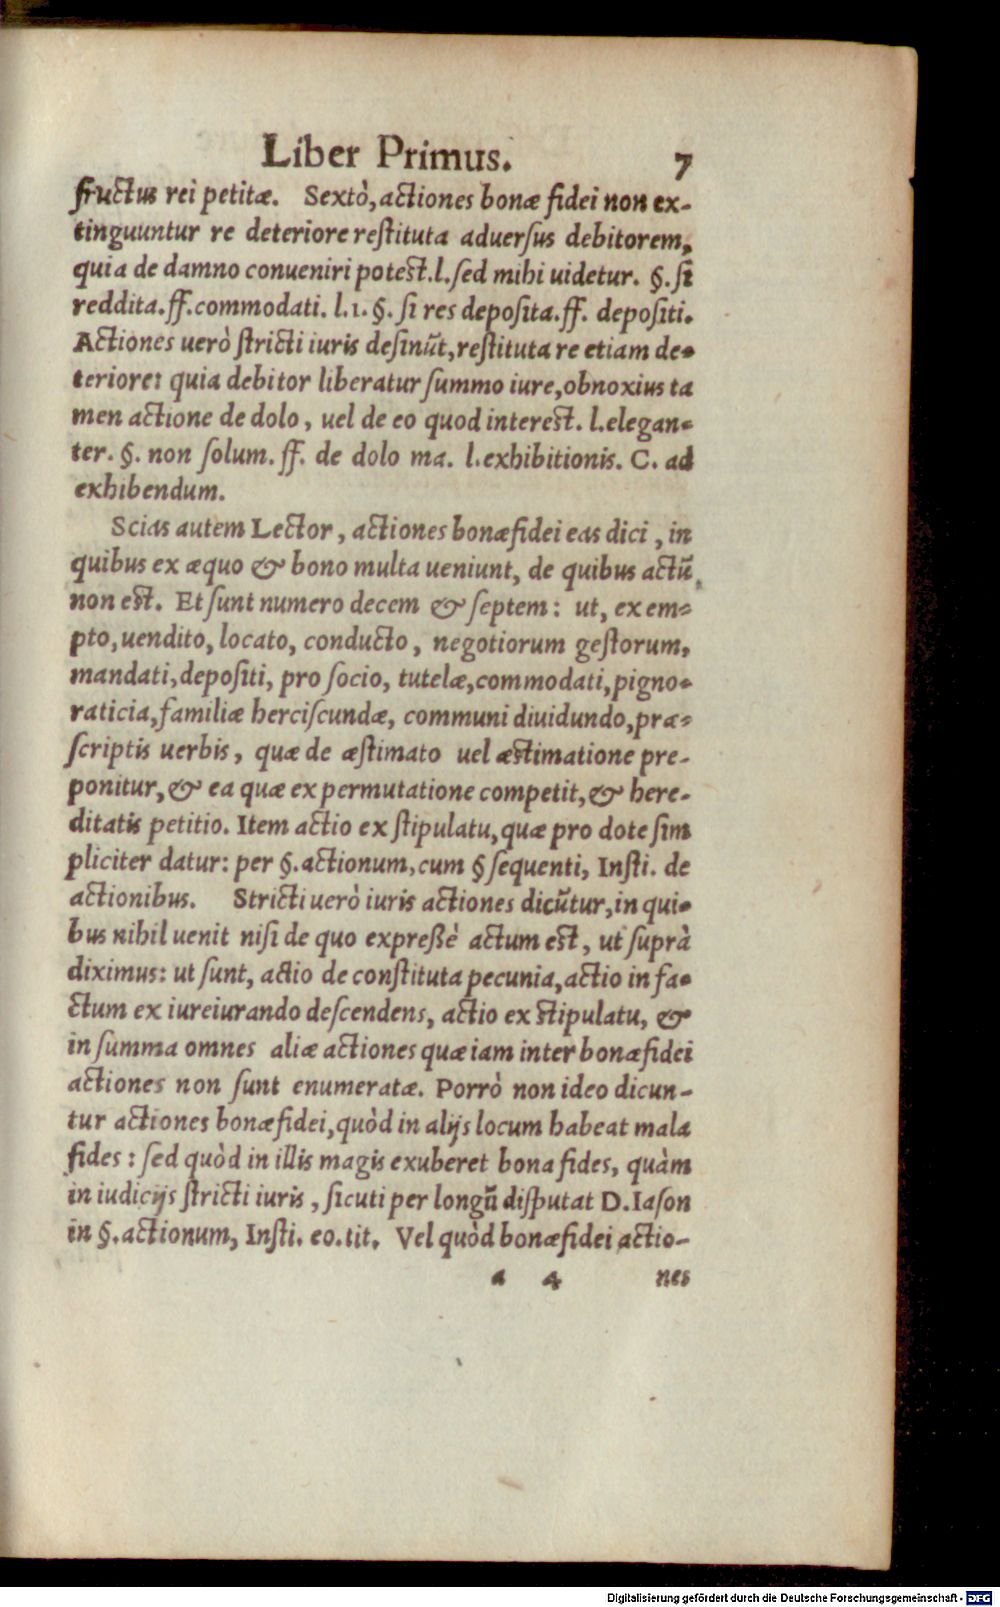 Liber Primus. 7
fructus rei petitæ. Sextò, actiones bonæ fidei non ex-
tinguuntur re deteriore reſtituta aduerſus debitorem,
quia de damno conueniri poteſt. l. ſed mihi uidetur. §. ſi
reddita. ff. commodati. l. 1. §. ſi res depoſita. ff. depoſiti.
Actiones uerò ſtricti iuris deſinūt, reſtituta re etiam de-
teriore: quia debitor liberatur ſummo iure, obnoxius ta
men actione de dolo, uel de eo quod intereſt. l. elegan-
ter. §. non ſolum. ff. de dolo ma. l. exhibitionis. C. ad
exhibendum.
Scias autem Lector, actiones bonæfidei eas dici, in
quibus ex æquo & bono multa ueniunt, de quibus actū
non eſt. Et ſunt numero decem & ſeptem: ut, ex em-
pto, uendito, locato, conducto, negotiorum geſtorum,
mandati, depoſiti, pro ſocio, tutelæ, commodati, pigno-
raticia, familiæ herciſcundæ, communi diuidundo, præ-
ſcriptis uerbis, quæ de æſtimato uel æſtimatione pre-
ponitur, & ea quæ ex permutatione competit, & here-
ditatis petitio. Item actio ex ſtipulatu, quæ pro dote ſim
pliciter datur: per §. actionum, cum § ſequenti, Inſti. de
actionibus. Stricti uerò iuris actiones dicūtur, in qui-
bus nihil uenit niſi de quo expreßè actum eſt, ut ſuprà
diximus: ut ſunt, actio de conſtituta pecunia, actio in fa-
ctum ex iureiurando deſcendens, actio ex ſtipulatu, &
in ſumma omnes aliæ actiones quæ iam inter bonæfidei
actiones non ſunt enumeratæ. Porrò non ideo dicun-
tur actiones bonæfidei, quòd in alijs locum habeat mala
fides: ſed quòd in illis magis exuberet bona fides, quàm
in iudicijs ſtricti iuris, ſicuti per longū diſputat D. Iaſon
in §. actionum, Inſti. eo. tit. Vel quòd bonæfidei actio-
a 4 nes
Digitalisierung gefördert durch die Deutsche Forschungsgemeinschaft - DFG